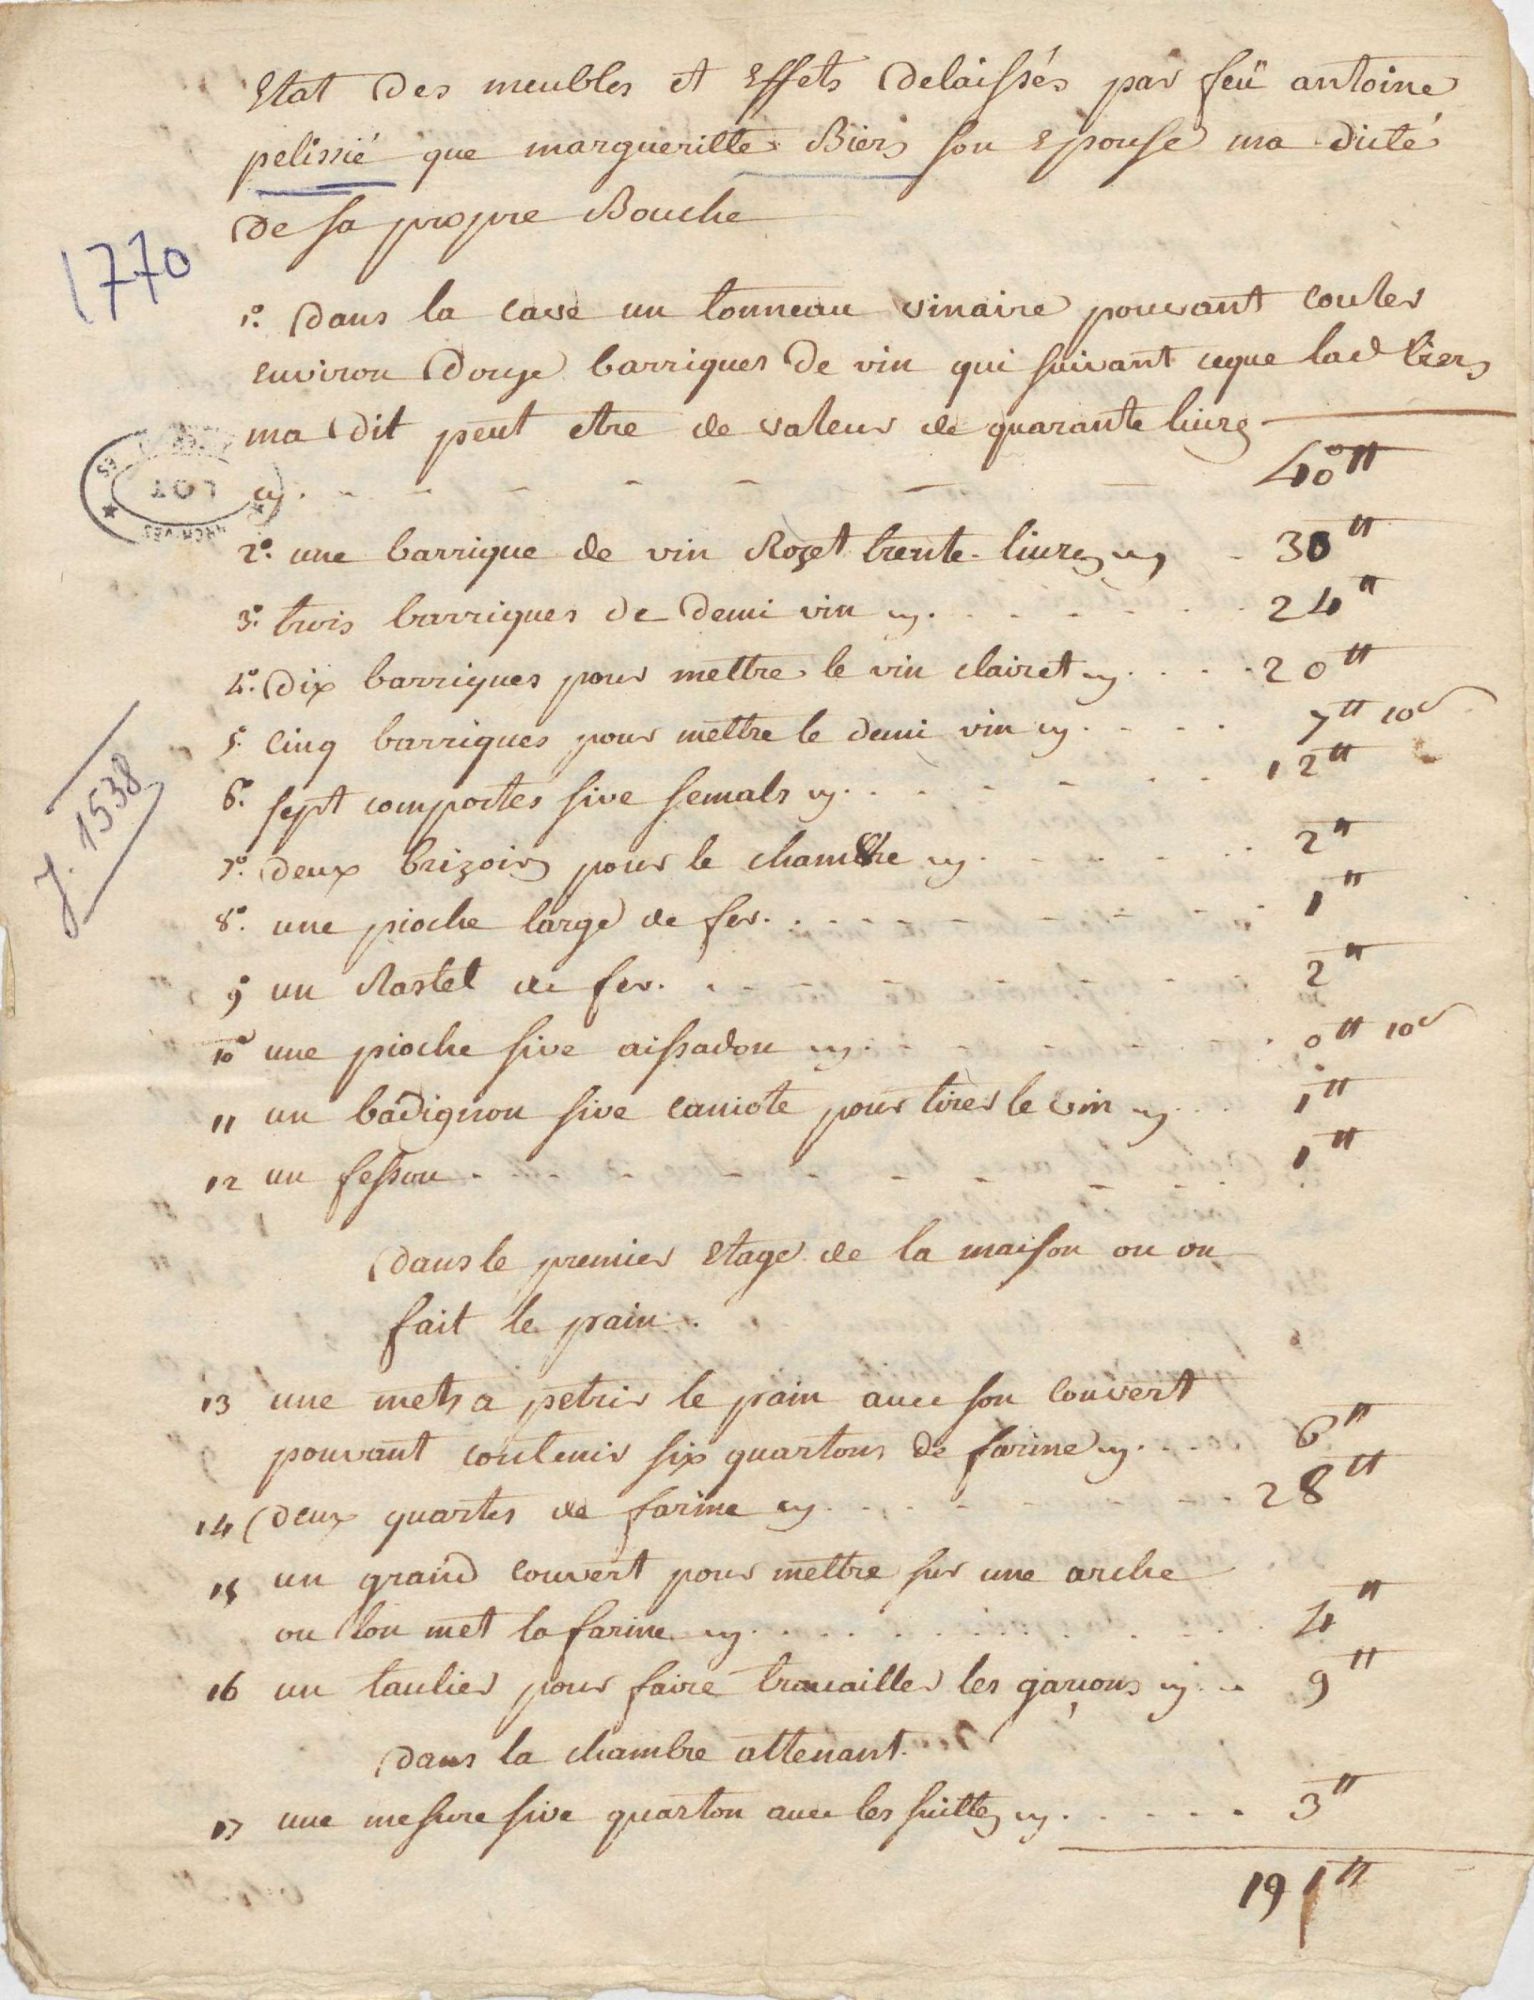 Etat Des meubles et Effets Delaissés par feü antoine
pelissié que margueritte Biers son Epouse ma dicté
de sa propre Bouche
1770
1° Dans la cave un tonneau vinaire pouvant couler
environ Douze barriques De vin qui suivant ceque lad Biers
ma Dit peut etre de valeur de quarante livres
cy. - - - - - - 40ᵗᵗ
2° une barrique de vin Rozet trente livres cy - 30ᵗᵗ
3° trois barriques de Demi vin cy. - - - - 24ᵗᵗ
4° Dix barriques pour mettre le vin clairet cy. - - - 20ᵗᵗ
5° Cinq barriques pour mettre le demi vin cy. - - - 7ᵗᵗ 10ˢ
6° sept comportes sive semals cy. - - - - 12ᵗᵗ
7° deux brizoirs pour le chambre cy. - - - - 2ᵗᵗ
8° une pioche large de fer. - - - - - - 1ᵗᵗ
9° un Rastel de fer. - - - - - - 2ᵗᵗ
10° une pioche sive aissadou cy. - - - - - 0ᵗᵗ 10ˢ
11 un badignon sive caniote pour tirer le vin cy. - - 1ᵗᵗ
12 un fessou - - - - - - - - 1ᵗᵗ
Dans le premier Etage de la maison ou on
fait le pain.
13 une mets a petrir le pain avec son couvert
pouvant contenir six quartons de farine cy. - - 6ᵗᵗ
14 Deux quartes de farine cy. - - - - - - 28ᵗᵗ
15 un grand couvert pour mettre sur une arche
ou lon met la farine cy. - - - - - - 4ᵗᵗ
16 un taulier pour faire travailler les garçons cy. - 9ᵗᵗ
Dans la chambre attenant.
17 une mesure sive quarton avec les suittes cy. - - - - 3ᵗᵗ
191ᵗᵗ
J. 1538
LOT
ARCHIVES